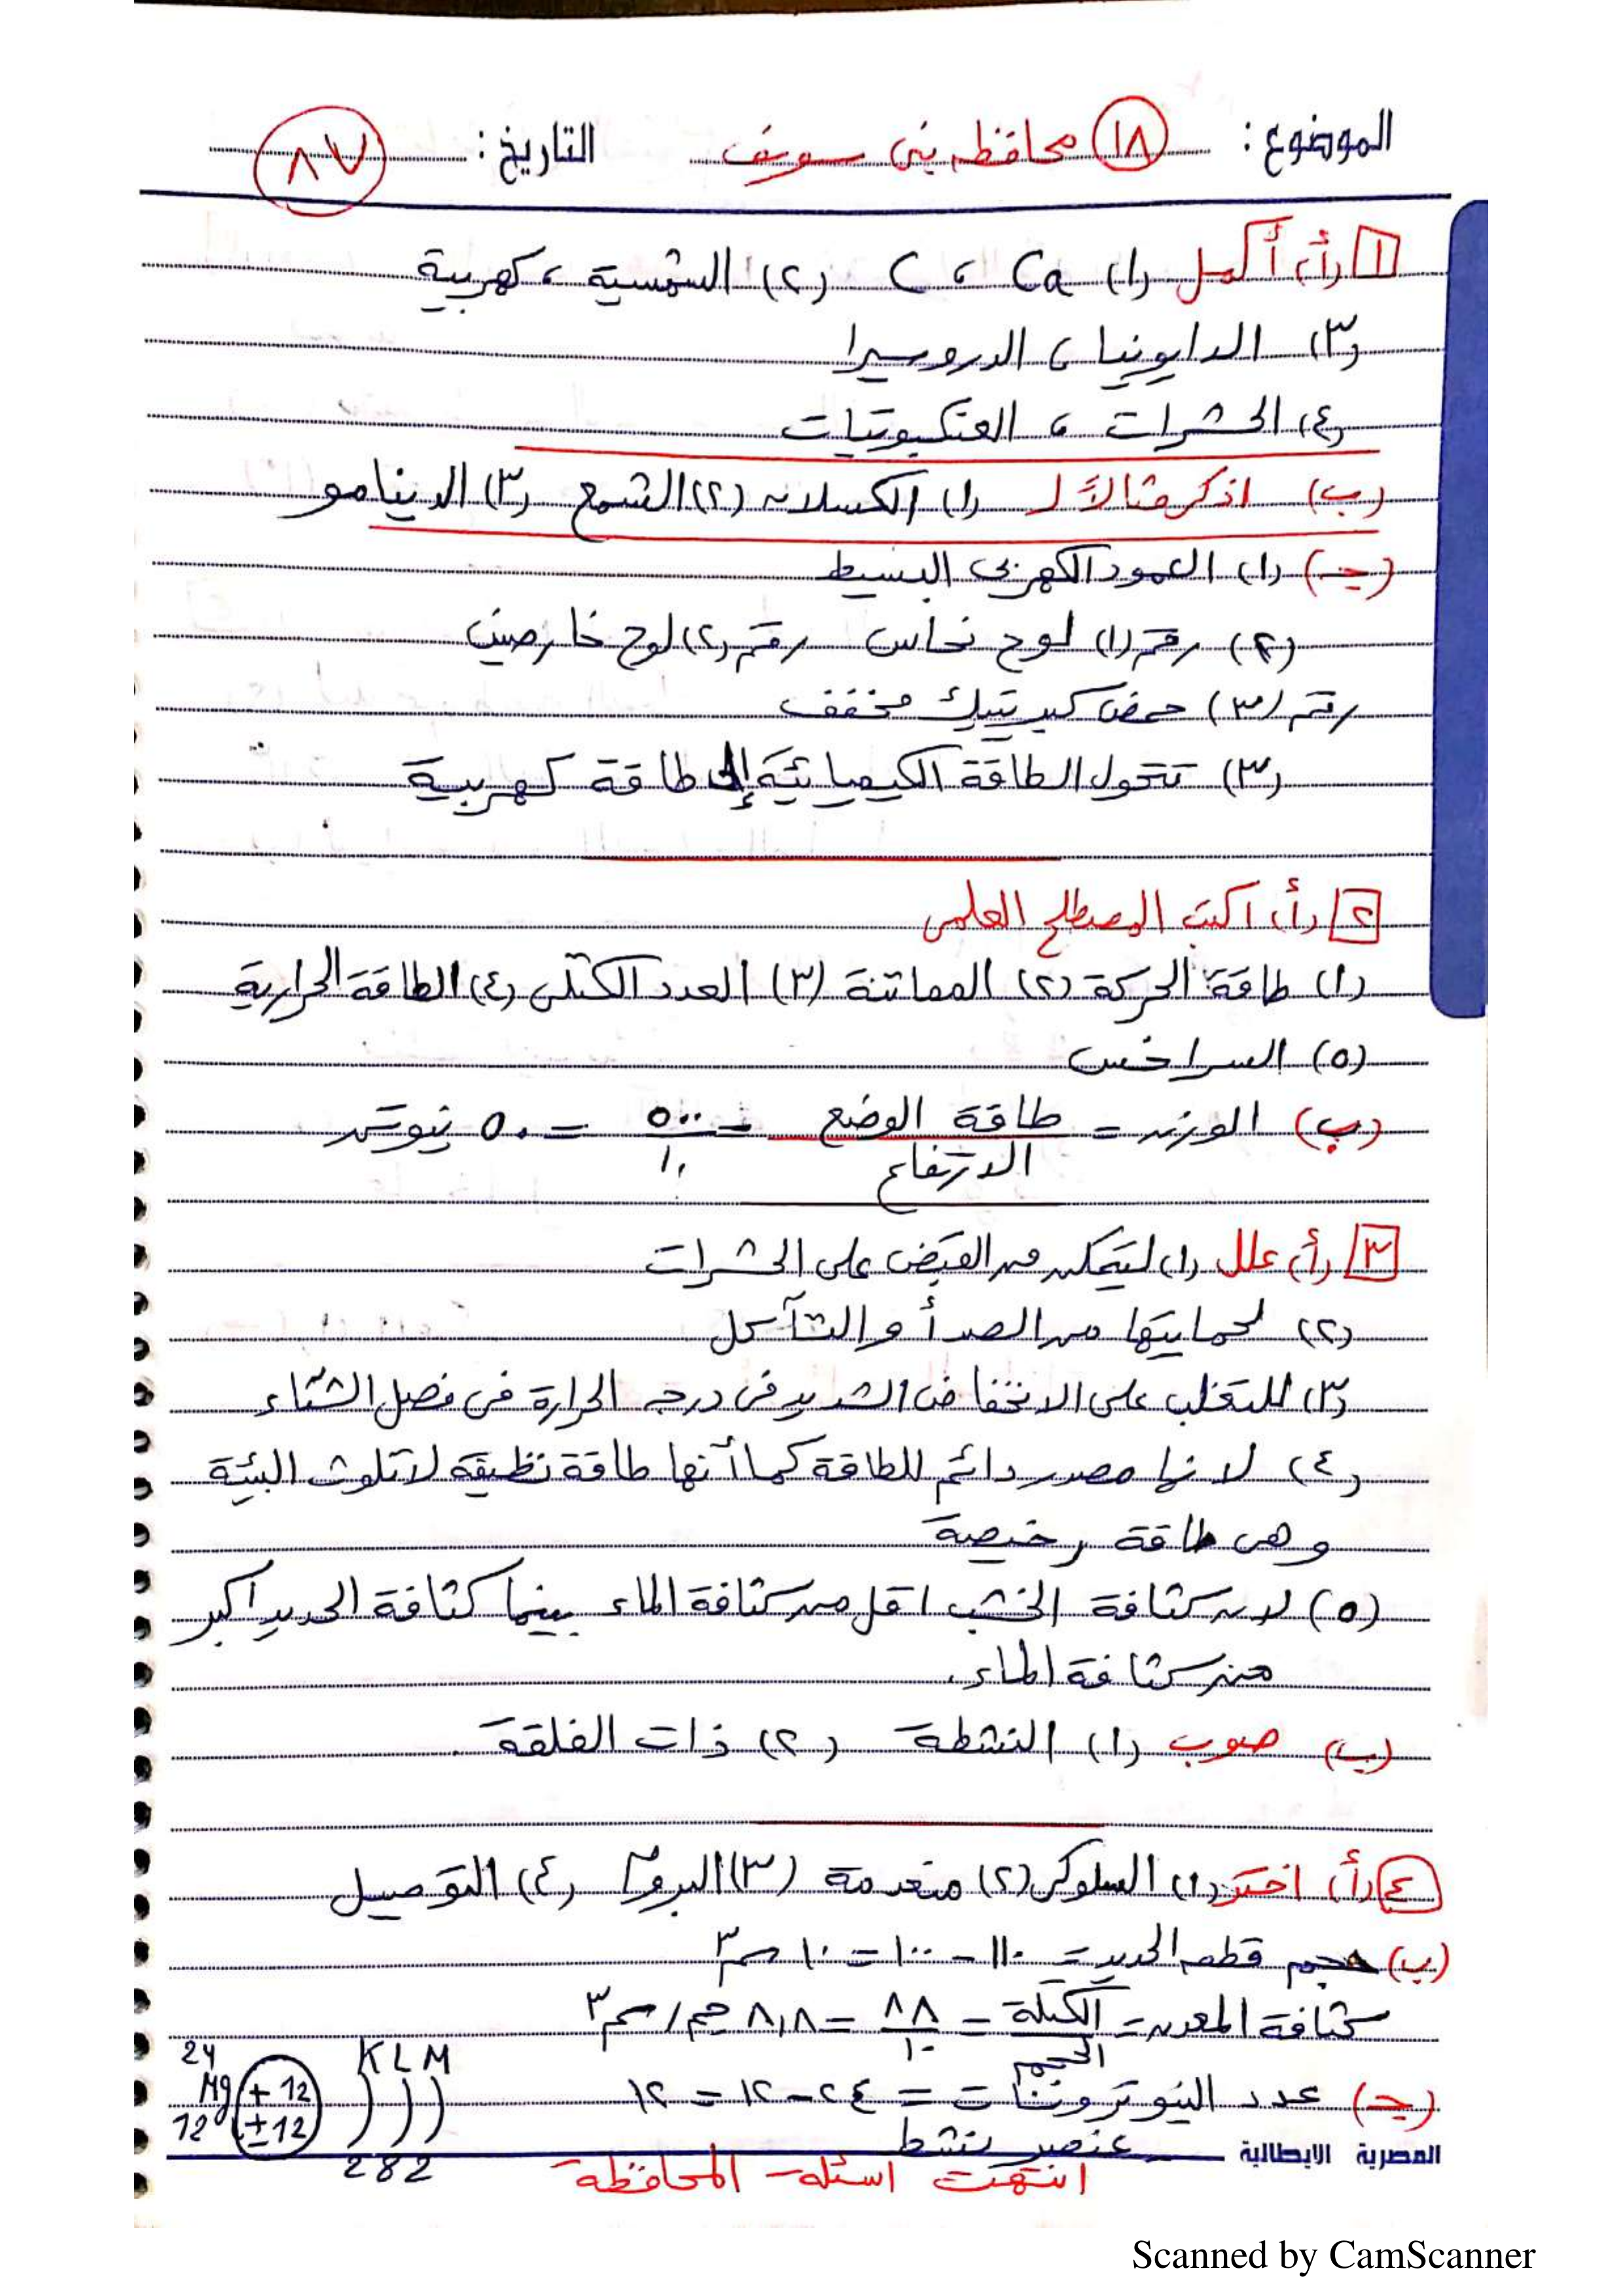 الموضوع: (١٨) محافظه بنى سويف التاريخ: ٨٧
١ (أ) أكمل (١) Ca ، C (٢) الشمسية ، كهربية
(٣) الدايونيا ، الدروسيرا
(٤) الحشرات ، العنكبوتيات
(ب) اذكر مثالاً لـ (١) الكسلان (٢) الشمع (٣) الدينامو
(جـ) (١) العمود الكهربى البسيط
(٢) رقم (١) لوح نحاس رقم (٢) لوح خارصين
رقم (٣) حمض كبريتيك مخفف
(٣) تتحول الطاقة الكيميائية إلى طاقة كهربية
٢ (أ) اكتب المصطلح العلمى
(١) طاقة الحركة (٢) المماتنة (٣) العدد الكتلى (٤) الطاقة الحرارية
(٥) السراخس
(ب) الوزن = طاقة الوضع / الارتفاع = ٥٠٠ / ١٠ = ٥٠ نيوتن
٣ (أ) علل (١) لتتمكن من القبض على الحشرات
(٢) لحمايتها من الصدأ والتآكل
(٣) للتغلب على الانخفاض الشديد فى درجه الحرارة فى فصل الشتاء
(٤) لانها مصدر دائم للطاقة كما أنها طاقة نظيفة لا تلوث البيئة
وهى طاقة رخيصة
(٥) لان كثافة الخشب اقل من كثافة الماء بينما كثافة الحديد اكبر
من كثافة الماء.
(ب) صوب (١) النشطة (٢) ذات الفلقة
٤ (أ) اختر (١) السلوكى (٢) منعدمة (٣) البروم (٤) التوصيل
(ب) حجم قطعه الحديد = ١١٠ - ١٠٠ = ١٠ سم٣
كثافة المعدن = الكتلة / الحجم = ٨٨ / ١٠ = ٨,٨ جم/سم٣
(جـ) عدد النيوترونات = ٢٤ - ١٢ = ١٢
24 Mg 12 +12 ±12 K L M
عنصر نشط
2 8 2
المصرية الايطالية
انتهت اسئلة المحافظة
Scanned by CamScanner